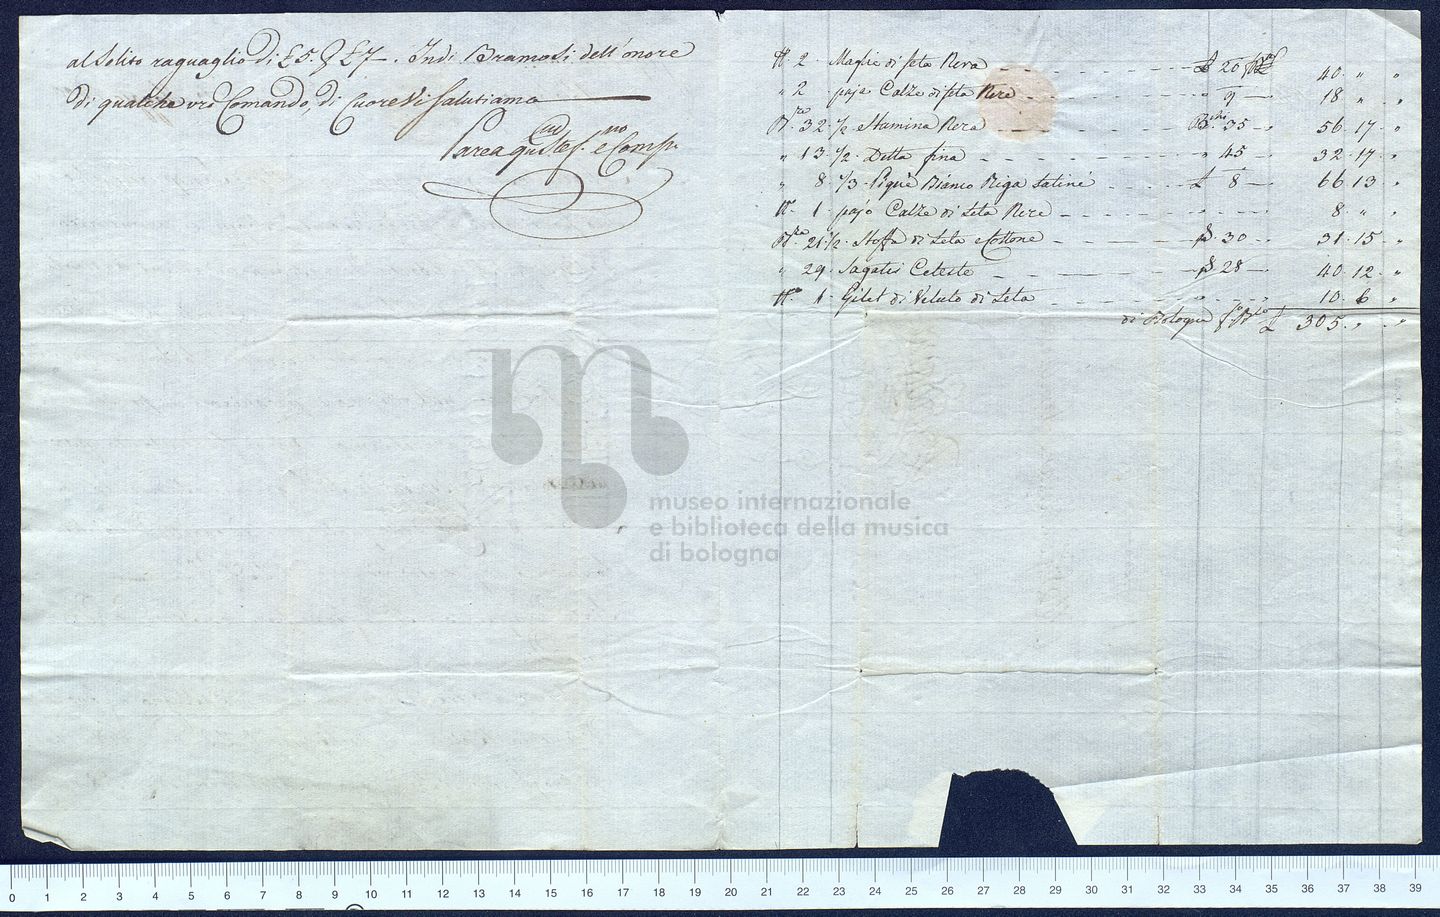 al Solito raguaglio di £5. p £7 -. Indi Bramosi dell'onore
di qualche vro Comando, di Cuore Vi Salutiamo
e Comp.
N.º 2 . Maglie di seta Nera £ 20 40. " "
" 2 . paja Calze di seta Nere " 9 18 " "
B.ra 32 1/2 Stamina Nera B.chi 35 56. 17. "
" 13. 1/2. Detta fina " 45 32. 17. "
" 8. 1/3. Piquè Bianco Riga Satiné £ 8 66. 13 "
N.º 1. pajo Calze di Seta Nere 8. " "
B.ra 21. 1/2. Stoffa di Seta e Cottone 30 31. 15. "
" 29. Sagatis Celeste 28 40. 12. "
N.º 1. Gilet di Veluto di Seta 10. 6 "
di Bologna £ 305. " "
museo internazionale
e biblioteca della musica
di bologna
0 1 2 3 4 5 6 7 8 9 10 11 12 13 14 15 16 17 18 19 20 21 22 23 24 25 26 27 28 29 30 31 32 33 34 35 36 37 38 39